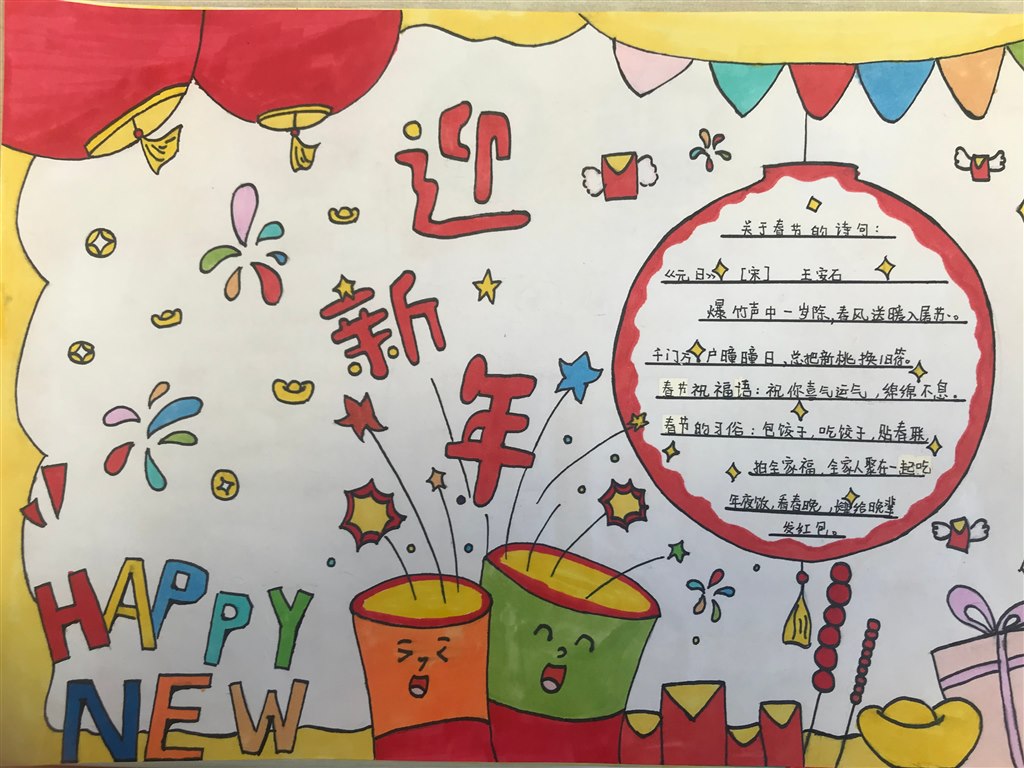 迎
新
年
关于春节的诗句：
《元日》 [宋] 王安石
爆竹声中一岁除，春风送暖入屠苏。
千门万户曈曈日，总把新桃换旧符。
春节祝福语：祝你喜气运气，绵绵不息。
春节的习俗：包饺子，吃饺子，贴春联，
拍全家福，全家人聚在一起吃
年夜饭，看春晚，给晚辈
发红包。
HAPPY
NEW